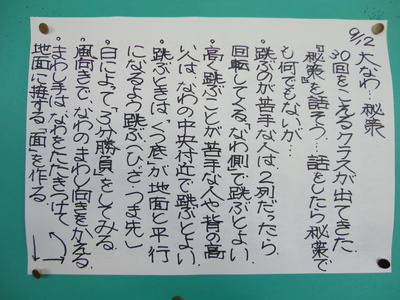 9/12 大なわ…秘策
30回をこえるクラスが出てきた.
『秘策』を話そう…話をしたら秘策で
も何でもないが…
・跳ぶのが苦手な人は、2列だったら、
回転してくる「なわ側」で跳ぶとよい.
・高く跳ぶことが苦手な人や背の高
い人は、なわの中央付近で跳ぶとよい.
・跳ぶときは、くつ底が地面と平行
になるよう跳ぶ(ひざ・つま先)
・日によって「3分勝負」をしてみる.
・風向きで、なわのまわし向きをかえる.
・まわし手は、なわをたたきつけて、
地面に接する「面」を作る.